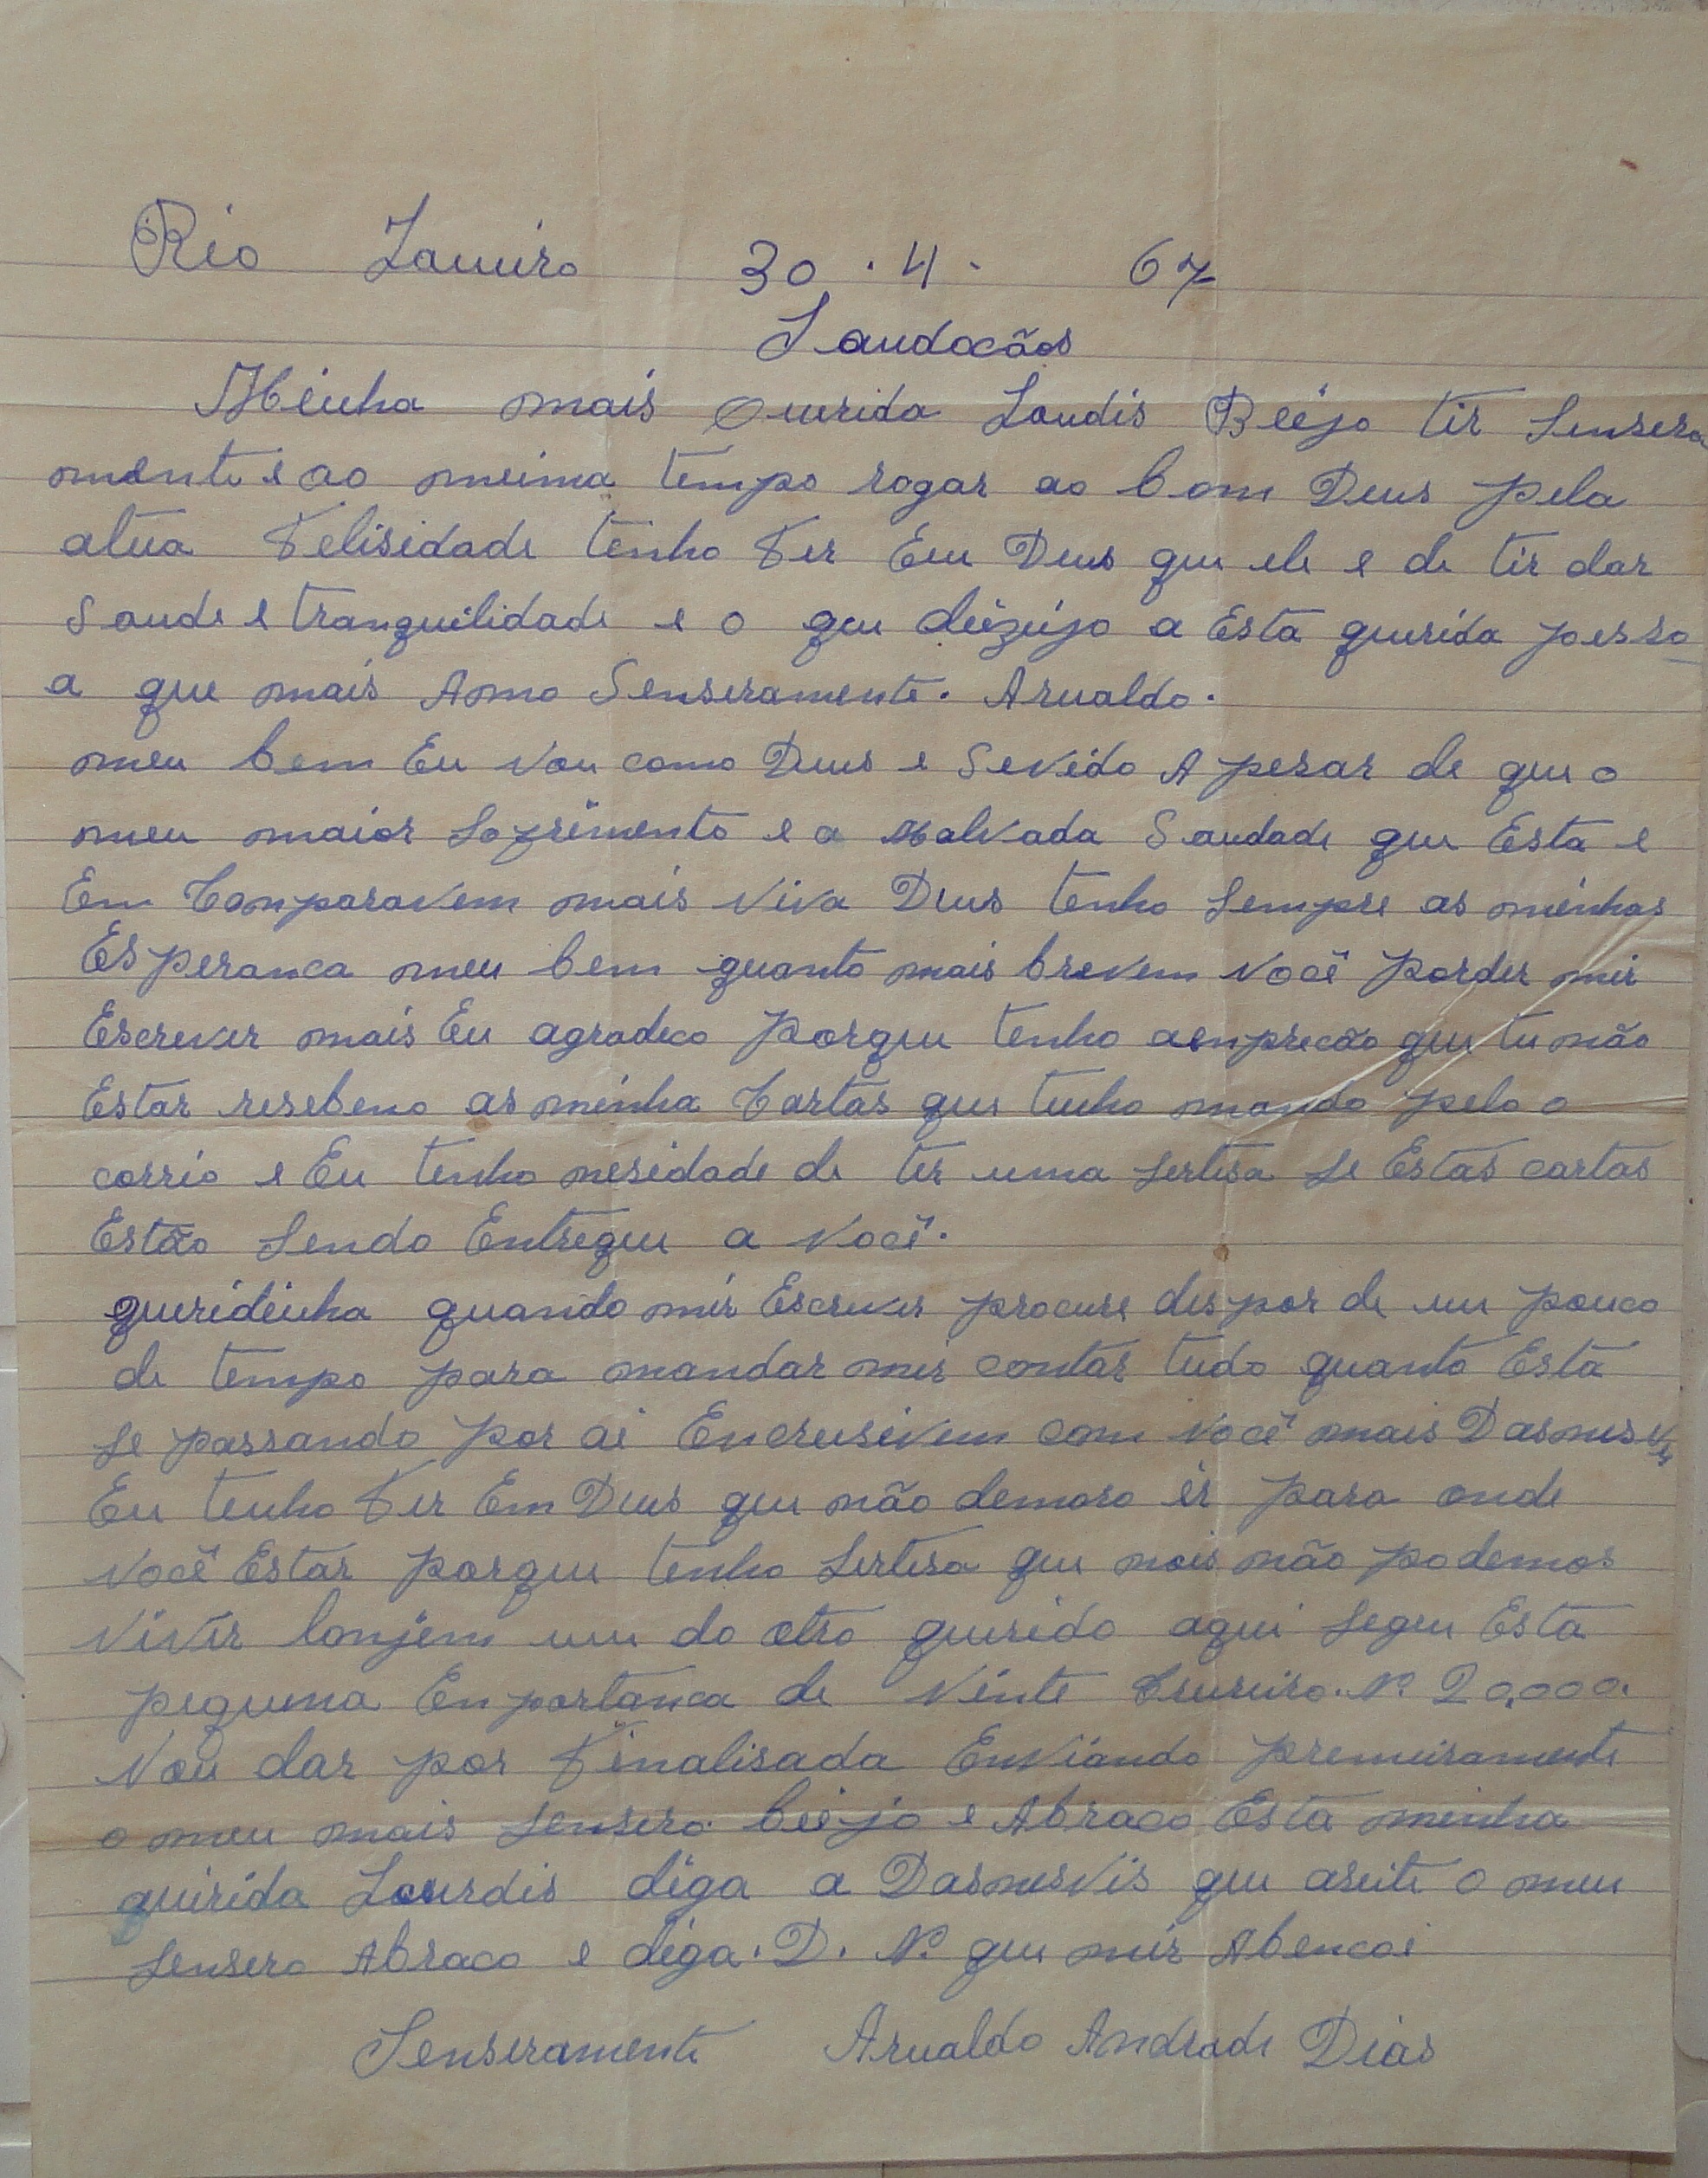 Rio Janeiro 30.4. 67
Saudacãos
Minha mais Querida Loudis Beijo tir Sensera
mente e ao meimo tempo rogar ao bom Deus pela
atua Felisidade tenho Fer Em Deus que ele e de tir dar
Saude e tranquilidade e o que deizeijo a Esta querida pesso
a que mais Amo Senseramente. Arnaldo.
meu bem Eu vou como Deus e Sevido Apezar de que o
meu maior Sofrimento e a Malvada Saudade que Esta e
Em Comparavem mais viva Deus tenho Sempre as minhas
Esperanca meu bem quanto mais brevem você porder mir
Escrever mais Eu agradeco porque tenho aenprecão que tu não
Estar resebeno as minha Cartas que tenho mando pelo o
corrio e Eu tenho nesidade de ter uma Sertesa Se Estas cartas
Estão Sendo Entregue a você.
querideinha quando mir Escrever procure despor de um pouco
de tempo para mandar mir contar tudo quanto Esta
Se passando por ai Encrusivem com você mais Dasneves
Eu tenho Fer Em Deus que não demoro ir para onde
você Estar porque tenho Sertesa que nois não podemos
viver lonjem um do otro querido aqui Segue Esta
pequena Enportanca de vinte Cruzeiro. Nº 20,000.
vou dar por Finalisada Enviando premeiramente
o meu mais Sensero beijo e Abraco Esta minha
quirida Lourdis diga a Dasnesvis que aseite o meu
Sensero Abraco e diga. D. N. que mir Abencoi
Senseramente Arnaldo Andrade Dias